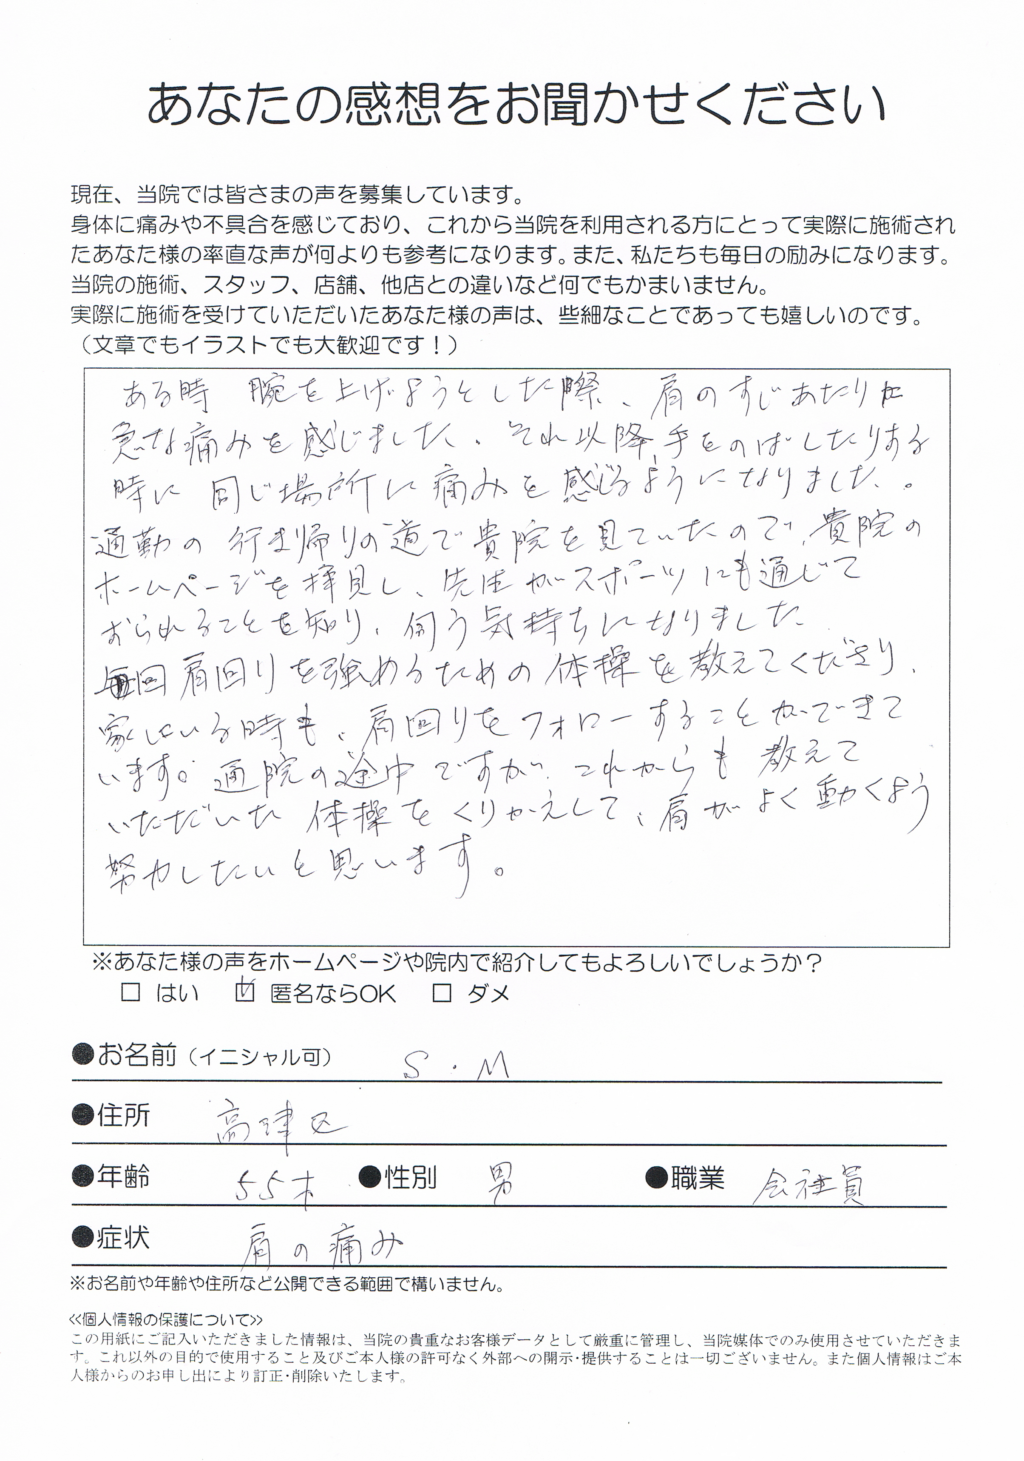 あなたの感想をお聞かせください
現在、当院では皆さまの声を募集しています。
身体に痛みや不具合を感じており、これから当院を利用される方にとって実際に施術され
たあなた様の率直な声が何よりも参考になります。また、私たちも毎日の励みになります。
当院の施術、スタッフ、店舗、他店との違いなど何でもかまいません。
実際に施術を受けていただいたあなた様の声は、些細なことであっても嬉しいのです。
（文章でもイラストでも大歓迎です！）
ある時 腕を上げようとした際、肩のすじあたりに
急な痛みを感じました。それ以降、手をのばしたりする
時に 同じ場所に痛みを感じるようになりました。
通勤の 行き帰りの道で貴院を見ていたので、貴院の
ホームページを拝見し、先生がスポーツにも通じて
おられることを知り、伺う気持ちになりました
毎回肩回りを強めるための体操を教えてくださり、
家にいる時も、肩回りをフォローすることができて
います。通院の途中ですが、これからも 教えて
いただいた 体操をくりかえして、肩がよく動くよう
努力したいと思います。
※あなた様の声をホームページや院内で紹介してもよろしいでしょうか？
□ はい ☑ 匿名ならOK □ ダメ
●お名前（イニシャル可） S.M
●住所 高津区
●年齢 55才 ●性別 男 ●職業 会社員
●症状 肩の痛み
※お名前や年齢や住所など公開できる範囲で構いません。
≪個人情報の保護について≫
この用紙にご記入いただきました情報は、当院の貴重なお客様データとして厳重に管理し、当院媒体でのみ使用させていただきま
す。これ以外の目的で使用すること及びご本人様の許可なく外部への開示・提供することは一切ございません。また個人情報はご本
人様からのお申し出により訂正・削除いたします。